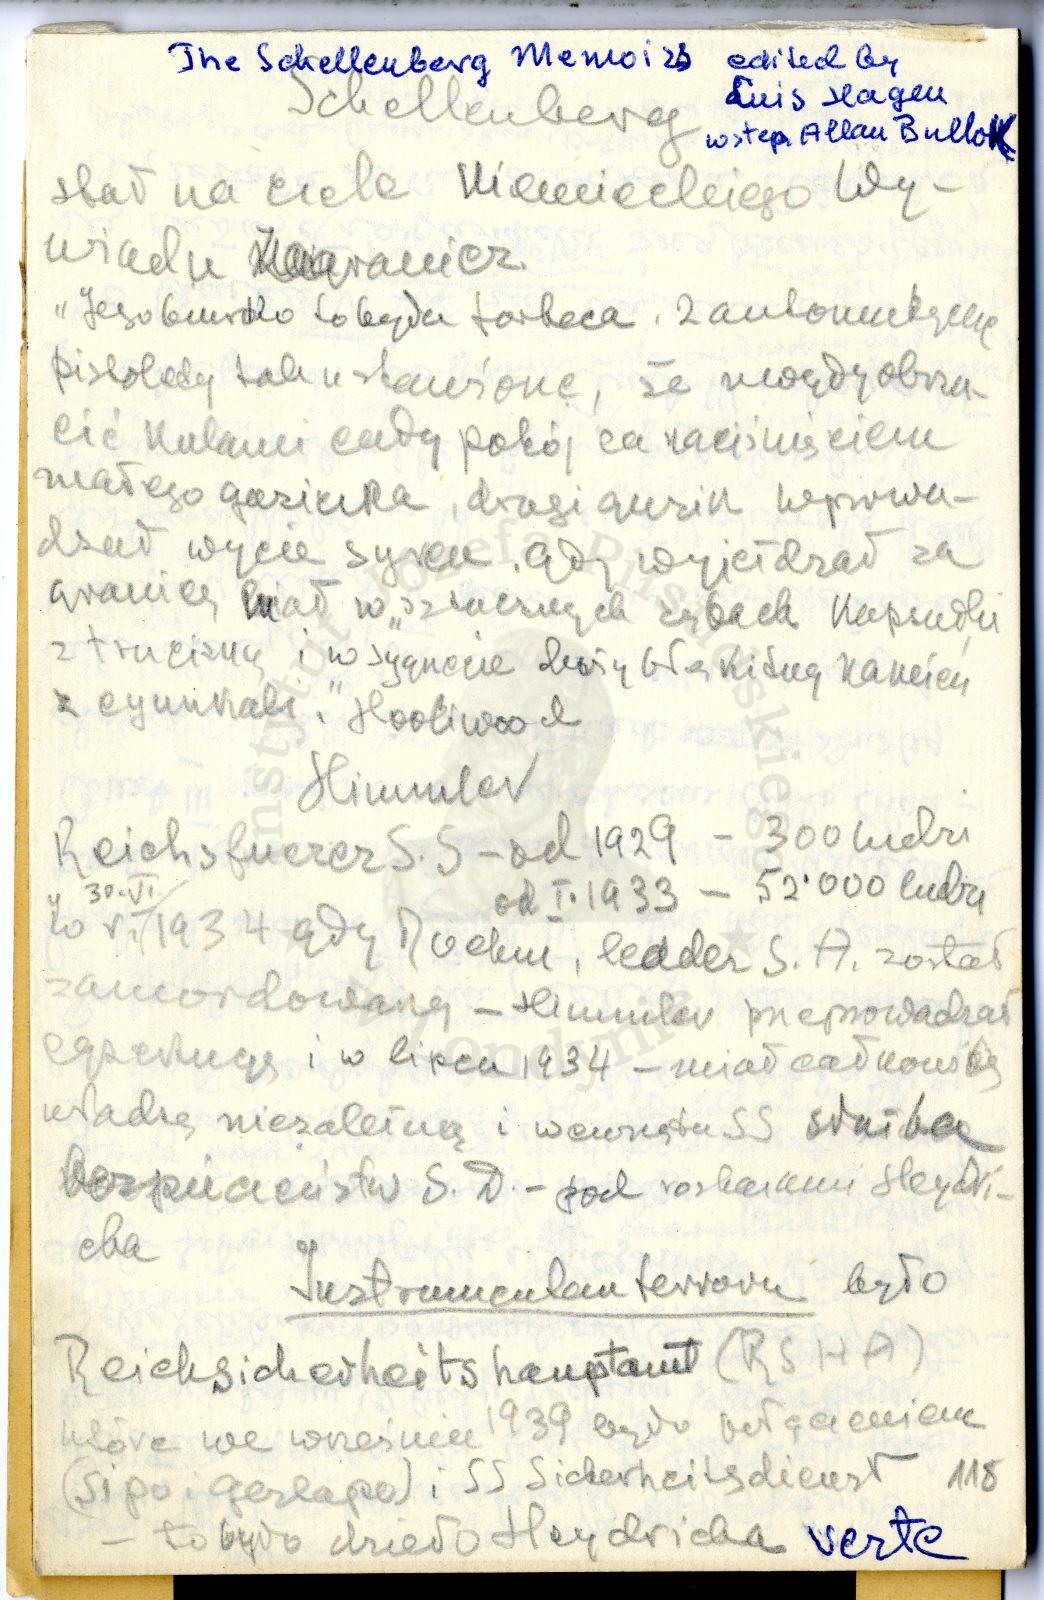 The Schellenberg Memoirs edited by
Luis Hagen
wstęp Allan Bullok
Schellenberg
stał na czele Niemieckiego Wy-
wiadu Zagranicz.
"Jego biurko to była forteca. 2 automatyczne
pistolety tak ustawione, że mogły obrzu-
cić kulami cały pokój za naciśnięciem
małego guzika, drugi guzik wprowa-
dzał wycie syren. Gdy wyjeżdżał za
granicę miał w sztucznych zębach kapsułki
z trucizną i w sygnecie duży błękitny kamień
z cyjankali." Hooliwood
Himmler
Reichsfuerer S.S - od 1929 - 300 ludzi
od I.1933 - 52.000 ludzi
30.VI
w VI/1934 gdy Roehm, leader S.A. został
zamordowany - Himmler przeprowadzał
egzekucję i w lipcu 1934 - miał całkowitą
władzę niezależną i wewnątrz SS służba
bezpieczeństw S.D. - pod rozkazami Heydri-
cha
Instrumentem terroru było
Reichsicherheitshauptamt (RSHA)
które we wrześniu 1939 było połączeniem
(Sipo i gestapo) i SS Sicherheitsdienst 118
- to było dzieło Heydricha verte
Instytut Józefa Piłsudskiego
w Londynie